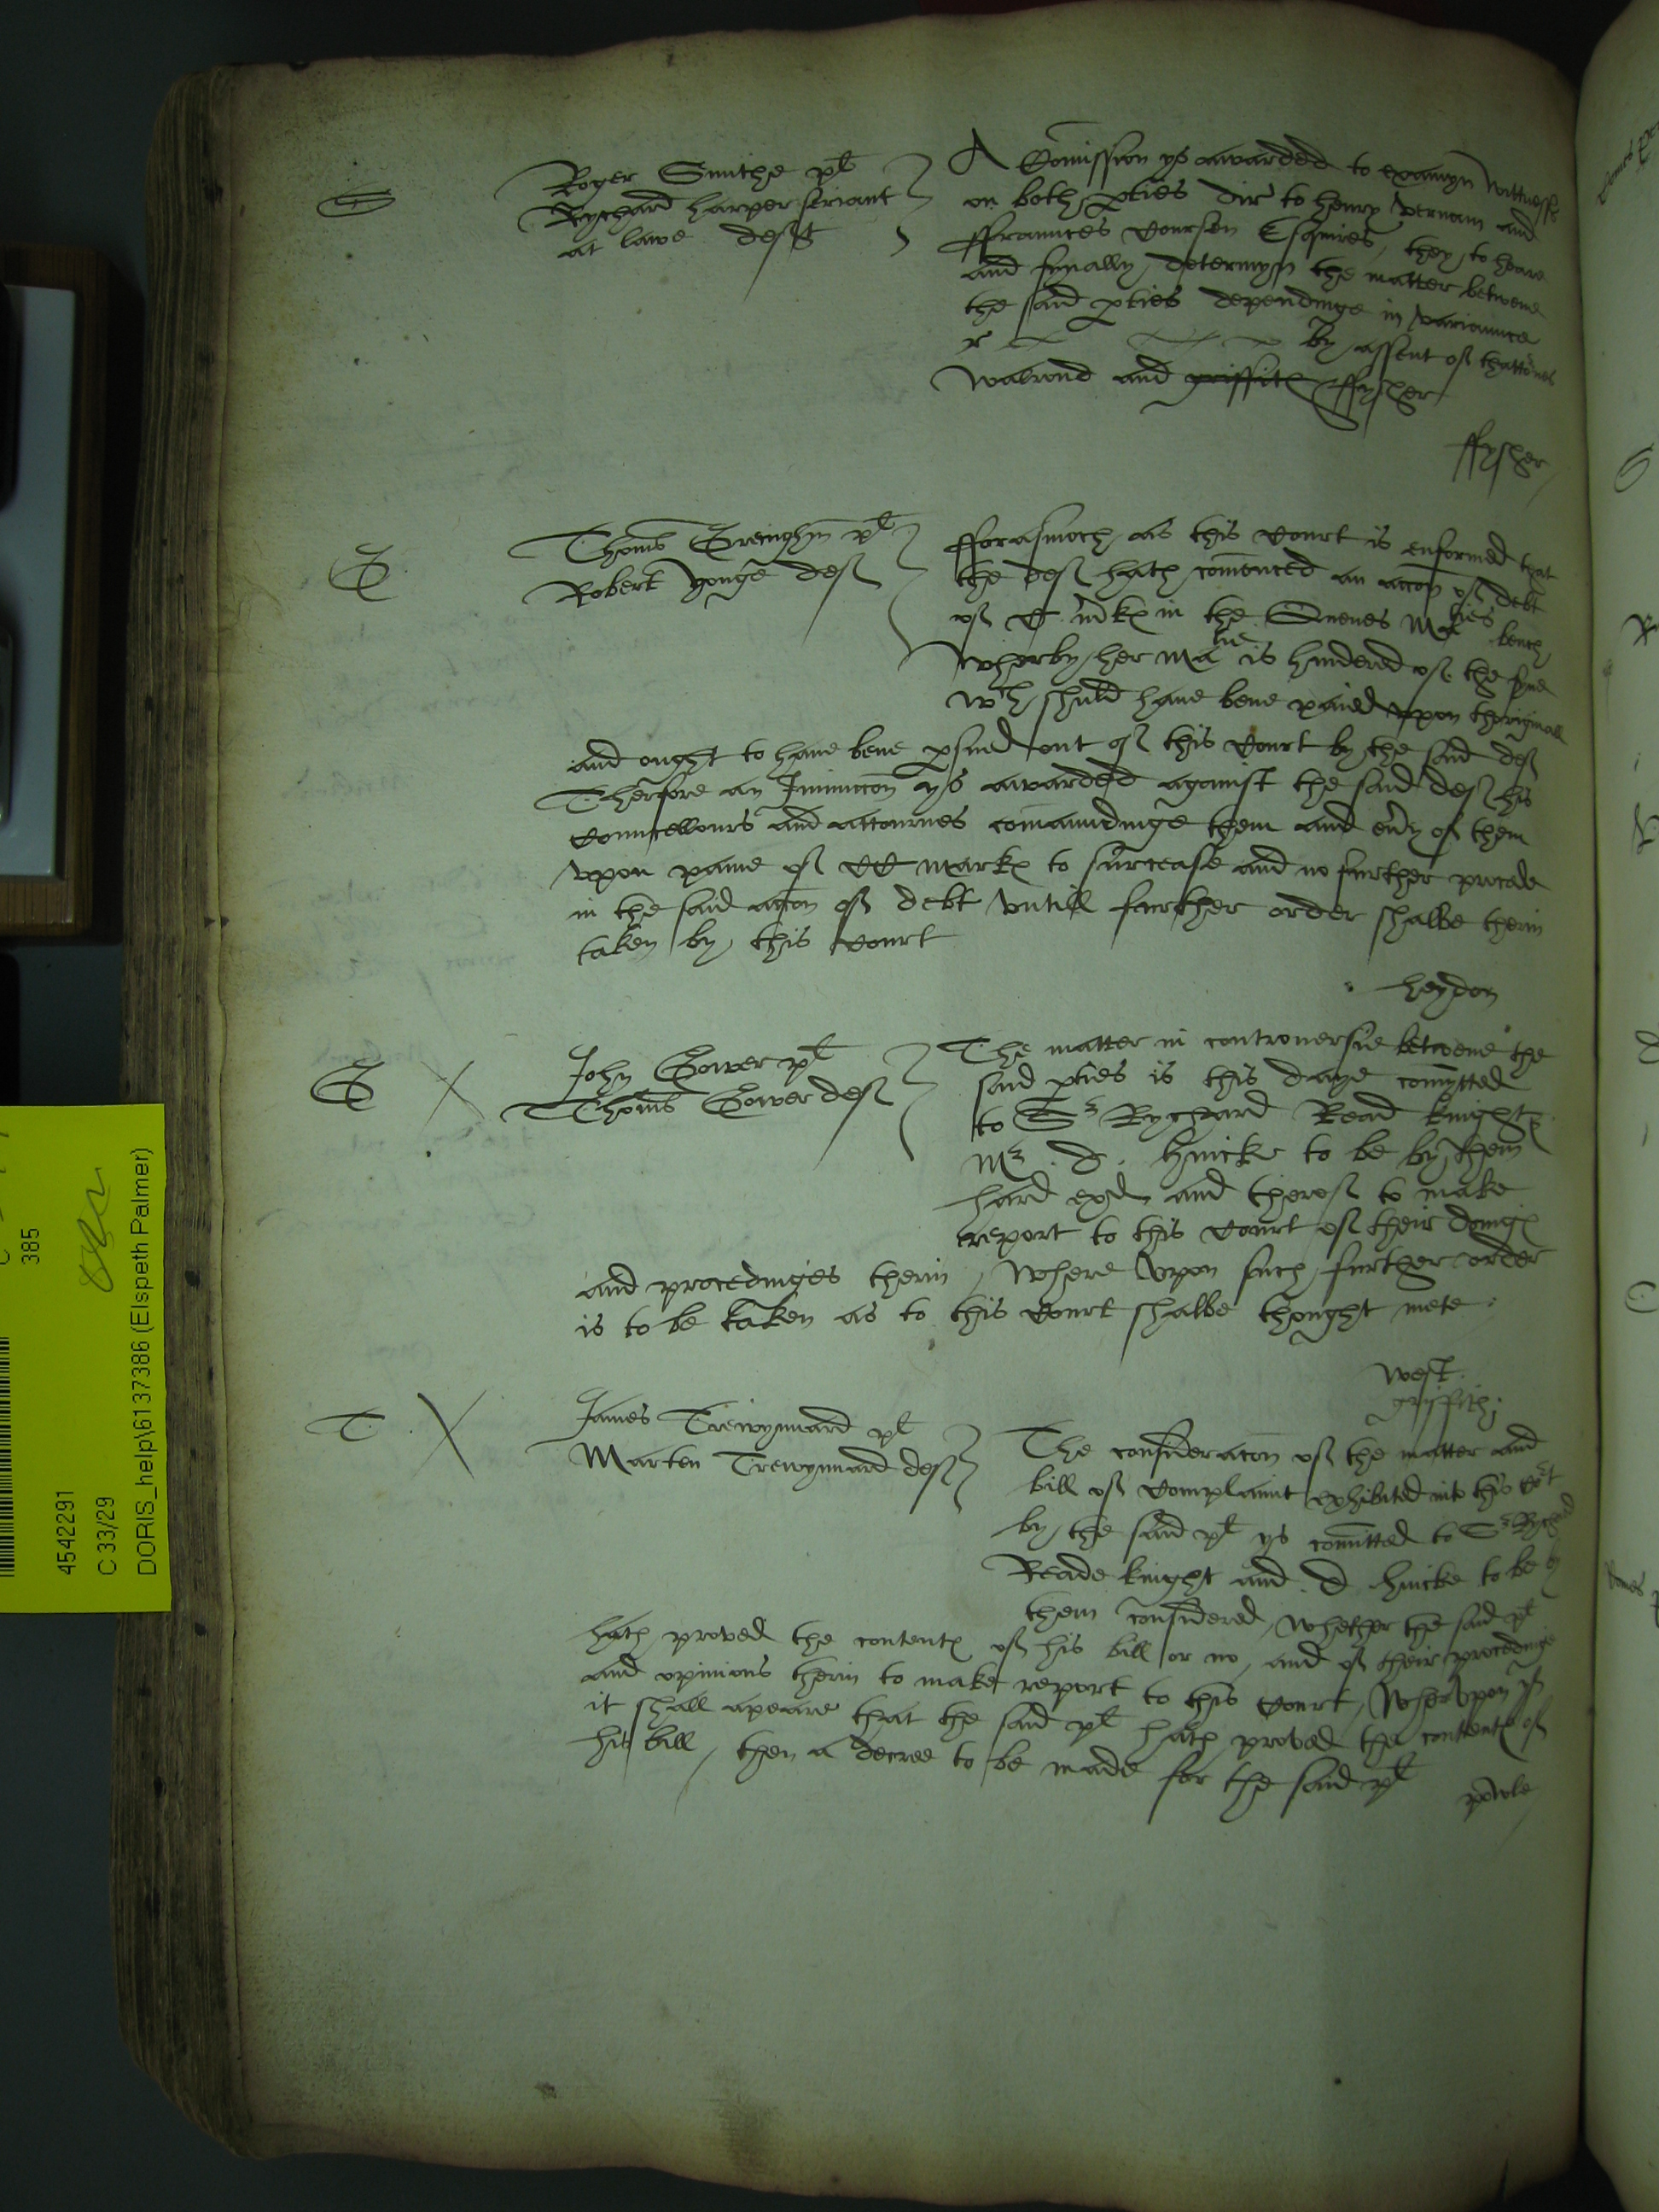 S
Roger Smithe pl
Rychard harper seriant
at lawe def
A Comission ys awarded to examyn wittnesses
on both pties dir to henry vernam and
ffraunces Esquires, they to heare
and fynally determyn the matter betwene
the said pties dependinge in variaunce
by assent of thattornes
walrond and griffith ffysher
ffysher
G
Thoms pl
Robert yonge def
fforasmoch as this Court is enformed that
the def hath comenced an accon of debt
of C mkes in the Quenes Maties bench
Wherby her matie is hindered of the fyne
wch shuld haue bene paied vpon thoriginall
and ought to haue bene psued out of this Court by the said def
Therfore an Iniunccon ys awarded against the said def his
Councellours and attournes comaundinge them and eury of them
vpon paine of CC markes to surcease and no further procede
in the said acon of debt vntill further order shalbe therin
taken by this Court
heydon
G
John Gower pl
Thoms Gower def
The matter in controuersie betwene the
said pties is this daye comytted
to Sr Rychard Read knight &
Mr . d . huicke to be by them
hard and therof to make
report to this Court of their doinges
and procedinges therin, Where vpon such further order
is to be taken as to this Court shalbe thought mete
West
griffith
T
James Trewynnard pl
Marten Trewynnard def
The consideracon of the matter and
bill of Complaint exhibited into this Cort
by the said pl ys comitted to Sr Rychard
Reade knight and . d . huicke to be by
them considered, Whether the said pl
hath proved the contentes of his bill or no, and of their procedinges
and opinions therin to make report to this Court, Whervpon yf
it shall apeare that the said pl hath proved the contentes of
his bill, then a decree to be made for the said pl
powle
385
4542291
C 33/29
DORIS_help\6137386 (Elspeth Palmer)